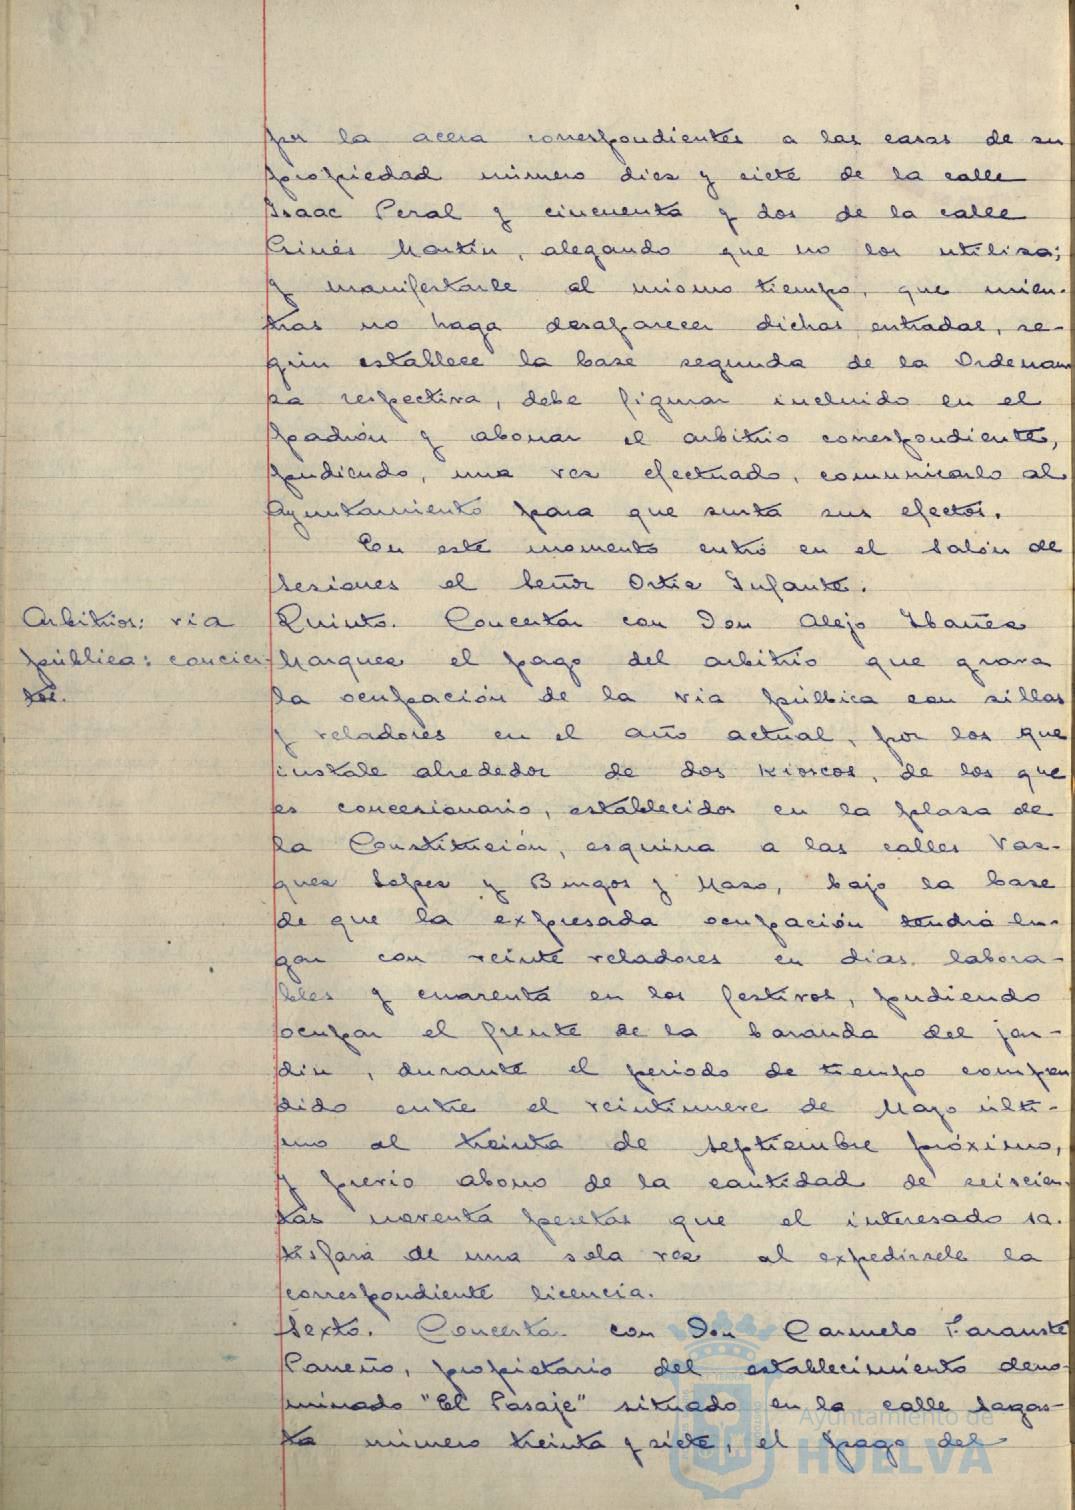 por la acera correspondientes a las casas de su
propiedad número diez y siete de la calle
Isaac Peral y cincuenta y dos de la calle
Ginés Martín, alegando que no los utiliza;
y manifestarle al mismo tiempo, que mien-
tras no haga desaparecer dichas entradas, se-
gún establece la base segunda de la Ordenan
za respectiva, debe figurar incluido en el
padrón y abonar el arbitrio correspondiente,
pudiendo, una vez efectuado, comunicarlo al
Ayuntamiento para que surta sus efectos.
En este momento entró en el Salón de
Sesiones el Señor Ortiz Infante.
Arbitrios: via
pública: concier
tos.
Quinto. Concertar con Don Alejo Ibañez
Marquez el pago del arbitrio que grava
la ocupación de la via pública con sillas
y veladores en el año actual, por los que
instale alrededor de dos kioscos, de los que
es concesionario, establecidos en la plaza de
la Constitución, esquina a las calles Vaz-
quez Lopez y Burgos y Mazo, bajo la base
de que la expresada ocupación tendrá lu-
gar con veinte veladores en dias labora-
bles y cuarenta en los festivos, pudiendo
ocupar el frente de la baranda del jar-
din, durante el periodo de tiempo compren
dido entre el veintinueve de Mayo últi-
mo al treinta de septiembre próximo,
y previo abono de la cantidad de seiscien-
tas noventa pesetas que el interesado sa-
tisfará de una sola vez al expedirsele la
correspondiente licencia.
Sexto. Concertar con Don Carmelo
Parreño, propietario del establecimiento deno-
minado "El Pasaje" situado en la calle Sagas-
ta número treinta y siete, el pago del
Ayuntamiento de
HUELVA